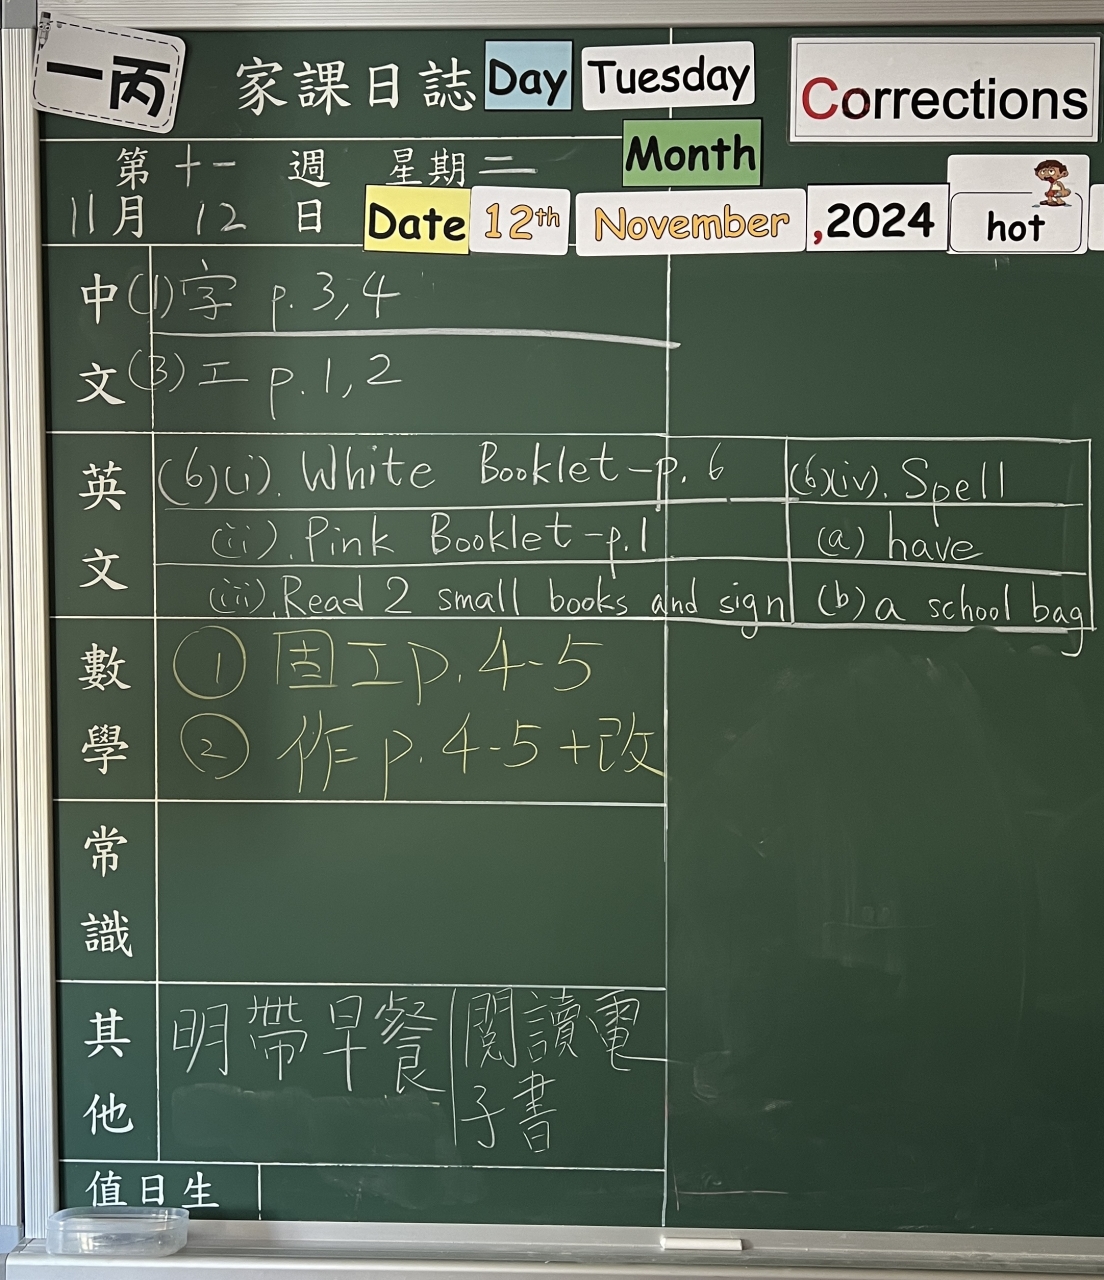 一丙 家課日誌 Day Tuesday Corrections
第十一週 星期二 Month
11月12日 Date 12th November ,2024 hot
中文
(1)字 p.3,4
(3)工 p.1,2
英文
(6)(i). White Booklet-p.6
(ii). Pink Booklet-p.1
(iii). Read 2 small books and sign
(6)(iv). Spell
(a) have
(b) a school bag
數學
① 固工p.4-5
② 作p.4-5+改
常識
其他
明帶早餐
閱讀電
子書
值日生